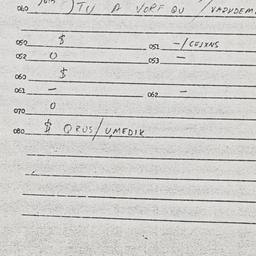 040 TU A VORF QU / VADVDEM
050 $ 051 -/CEJXNS
052 O 053 -
060 $
061 - 062 -
070 O
080 $ QRUS/UMEDIK